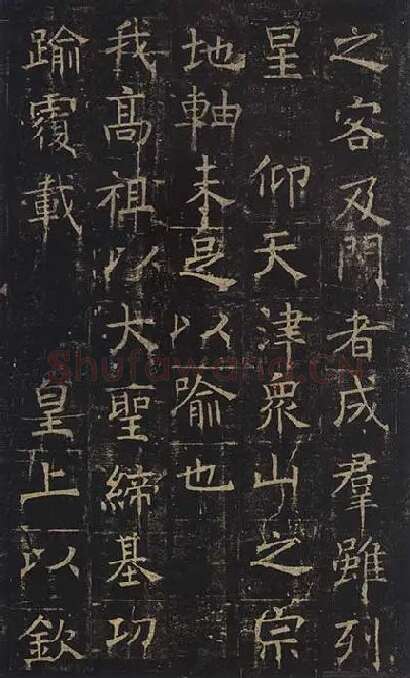 之客及門者成羣雖列
星 仰天津衆山之宗
地軸未足以喻也
我髙祖以大聖締基功
踰覆載 皇上以欽
Shufawang.CN